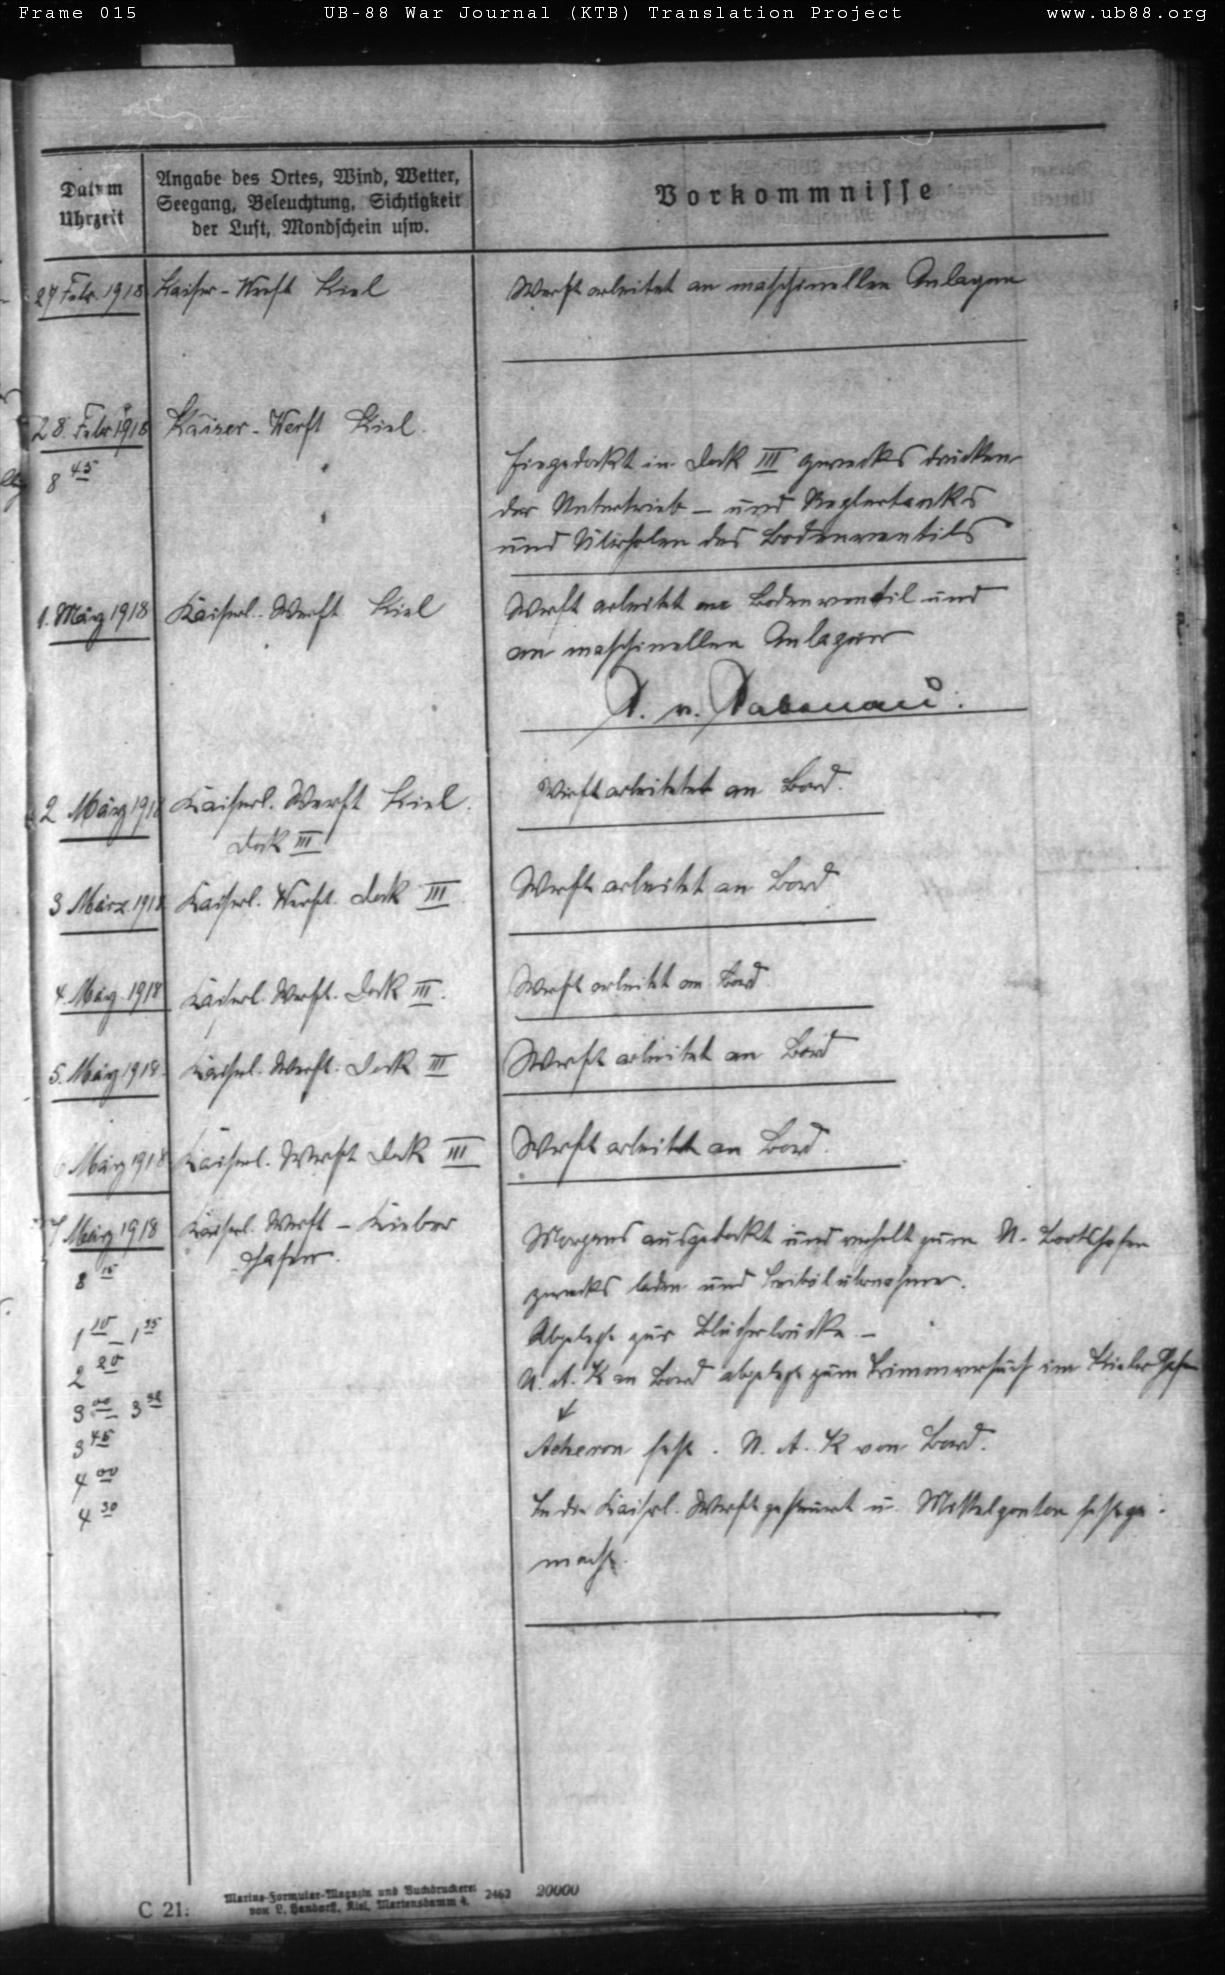 Frame 015 UB-88 War Journal (KTB) Translation Project www.ub88.org
Datum
Uhrzeit
Angabe des Ortes, Wind, Wetter,
Seegang, Beleuchtung, Sichtigkeit
der Luft, Mondschein usw.
Vorkommnisse
27 Febr. 1918 Kaiser-Werft Kiel Werft arbeitet an maschinellen Anlagen
28. Febr 1918 Kaiser-Werft Kiel.
8 45 Eingedockt in Dock III zwecks drücken
der Untertrieb- und Reglertanks
und Überholen des Bodenventils
1. März 1918 Kaiserl. Werft Kiel Werft arbeitet am Bodenventil und
an maschinellen Anlagen
R. v. Rabenau.
2 März 1918 Kaiserl. Werft Kiel. Werft arbeitet an Bord.
Dock III
3 März 1918 Kaiserl. Werft. Dock III. Werft arbeitet an Bord
4. März. 1918 Kaiserl. Werft. Dock III. Werft arbeitet an Bord.
5. März 1918. Kaiserl. Werft. Dock III Werft arbeitet an Bord
6 März 1918 Kaiserl. Werft Dock III Werft arbeitet an Bord.
7 März 1918 Kaiserl. Werft – Kieler
Hafen.
8 15 Morgens ausgedockt und verholt zum U. Bootshafen
zwecks laden und Treibölübernahme.
1 10 – 1 35 Abgelegt zur Blücherbrücke. –
2 20 U. A. K an Bord abgelegt zum Trimmversuch im Kieler Hafen
3 00 – 3 38
3 45 Acheron fest. U. A. K von Bord.
4 00
4 30 In die Kaiserl. Werft gesteuert u. Mittelponton festge-
macht.
C 21.
Marine-Formular-Magazin und Buchdruckerei
von L. Handorff, Kiel, Martensdamm 4.
2462 20000